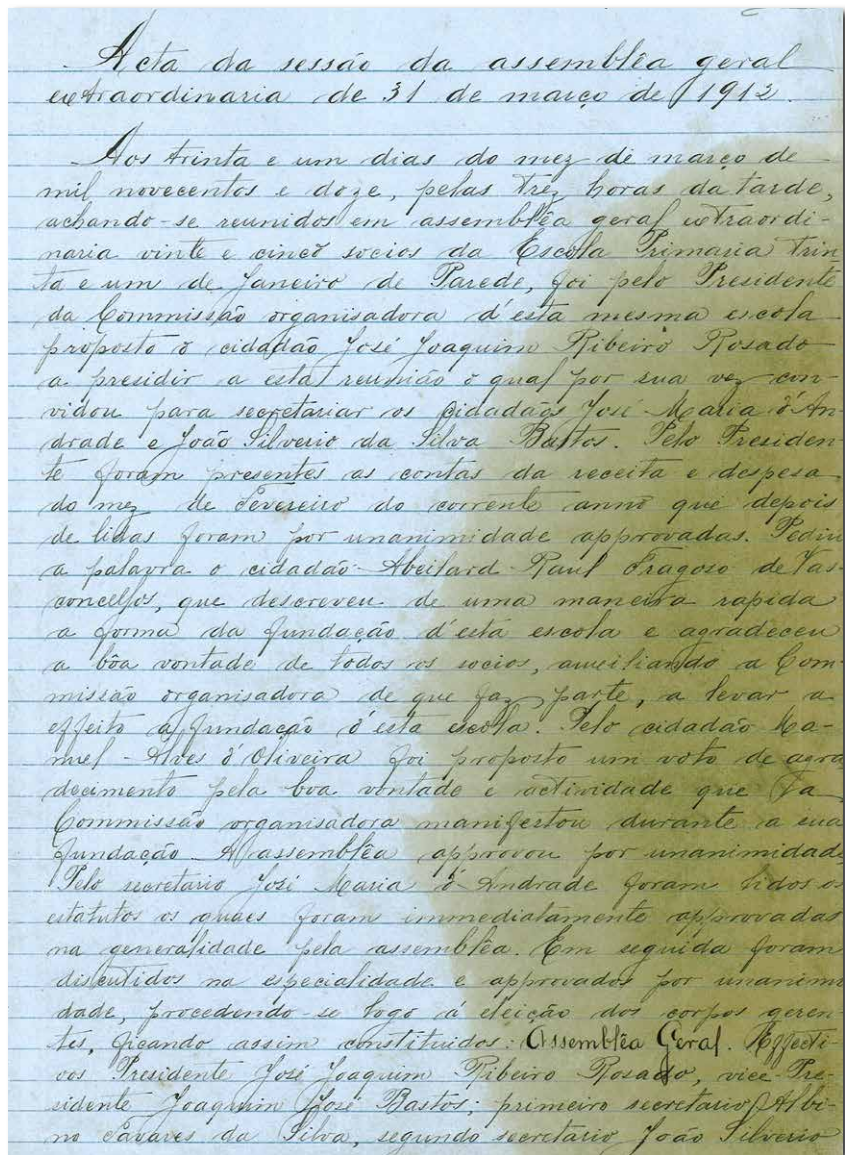 Acta da sessão da assemblêa geral
extraordinaria de 31 de março de 1912.
Aos trinta e um dias do mez de março de
mil novecentos e doze, pelas trez horas da tarde,
achando-se reunidos em assemblêa geral extraordi-
naria vinte e cinco socios da Escola Primaria Trin-
ta e um de Janeiro de Parede, foi pelo Presidente
da Commissão organisadora d'esta mesma escola
proposto o cidadão José Joaquim Ribeiro Rosado
a presidir a esta reunião o qual por sua vez con-
vidou para secretariar os cidadãos José Maria d'An-
drade e João Silverio da Silva Bastos. Pelo Presiden-
te foram presentes as contas da receita e despesa
do mez de Fevereiro do corrente anno que depois
de lidas foram por unanimidade approvadas. Pediu
a palavra o cidadão Abeilard Raul Fragoso de Vas-
concellos, que descreveu de uma maneira rapida
a forma da fundação d'esta escola e agradeceu
a bôa vontade de todos os socios, auxiliando a Com-
missão organisadora de que faz parte, a levar a
effeito a fundação d'esta escola. Pelo cidadão Ma-
nuel Alves d'Oliveira foi proposto um voto de agra-
decimento pela boa vontade e actividade que a
Commissão organisadora manifestou durante a sua
fundação. A assemblêa approvou por unanimidade
Pelo secretario José Maria d'Andrade foram lidos os
estatutos os quaes foram immediatamente approvados
na generalidade pela assemblêa. Em seguida foram
discutidos na especialidade e approvados por unanimi
dade, procedendo-se logo á eleição dos corpos geren-
tes, ficando assim constituidos: Assemblêa Geral. Effecti-
vos Presidente José Joaquim Ribeiro Rosado, vice-Pre-
sidente Joaquim José Bastos; primeiro secretario Albi-
no Tavares da Silva, segundo secretario João Silverio